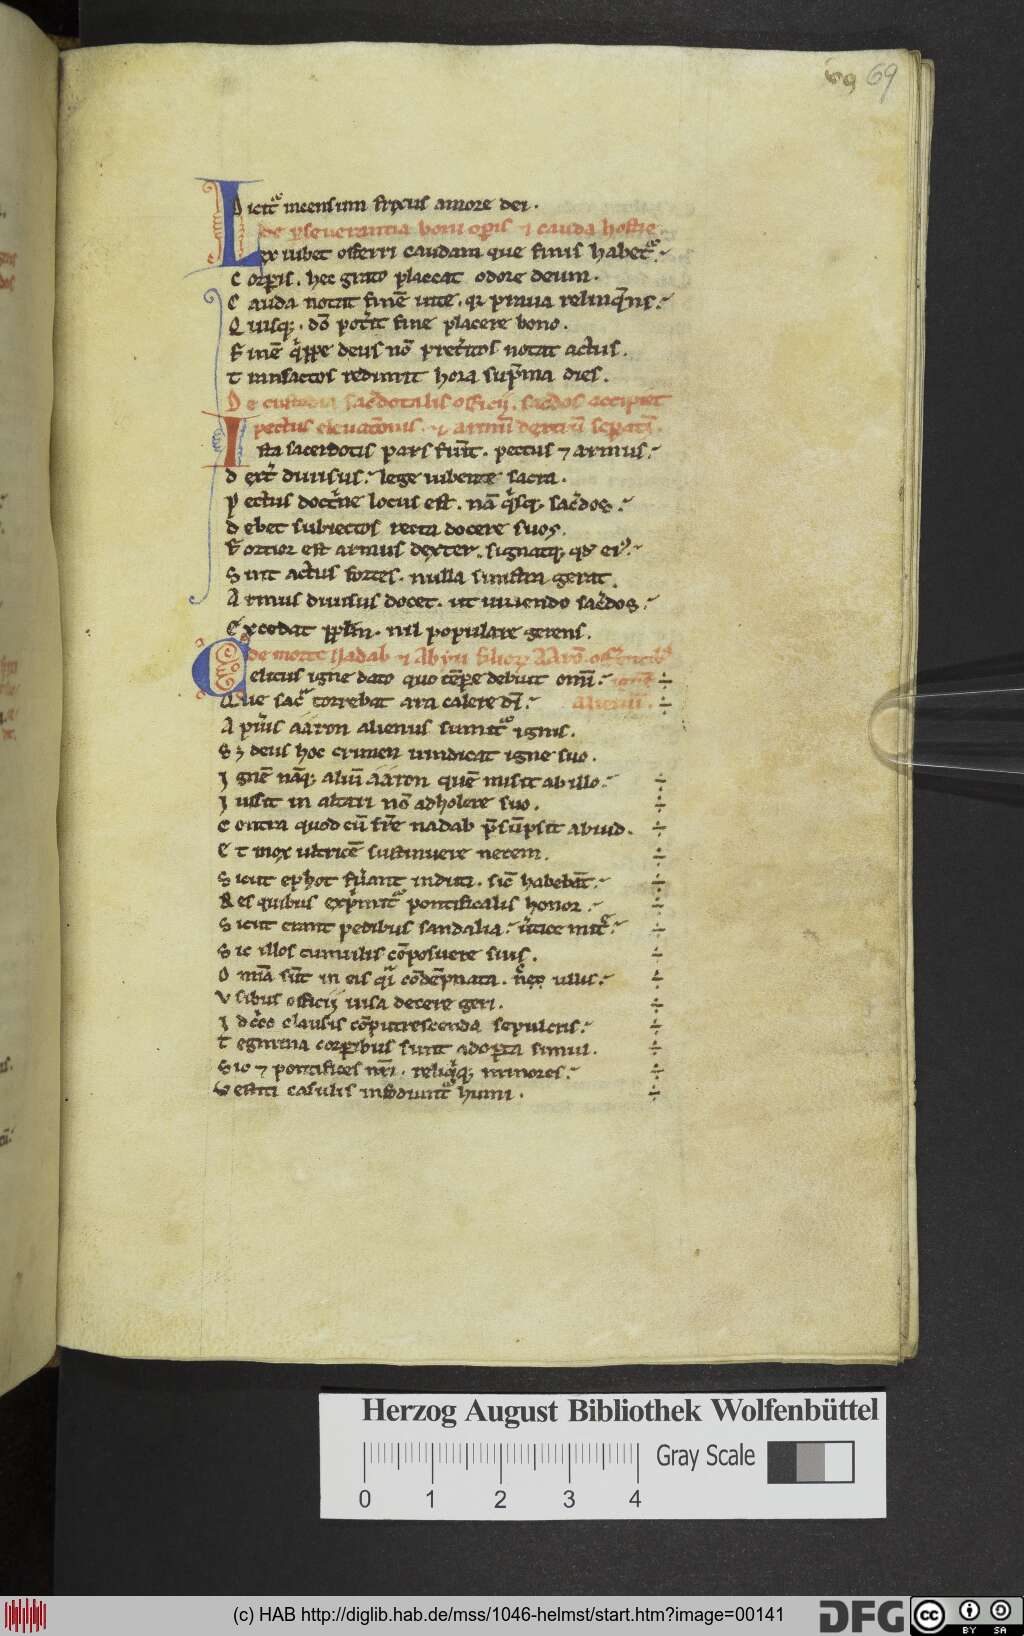 69 69
Dicitur incensum frixus amore dei.
de perseverantia boni operis ⁊ cauda hostie
Lex iubet offerri caudam que finis habetur
Corporis. hec grato placeat odore deum.
Cauda notat finē uite. qr praua relinquens
Quisq; dō poterit fine placere bono.
Finē quippe deus nō preteritos notat actus.
Transactos redimit hora suprema dies.
De custodia sacerdotalis officij. sacerdos accipiet
pectus eleuationis. ⁊ armū dextrū separatū.
Ista sacerdotis pars fuerit. pectus ⁊ armus
dexter diuisus lege iubente sacra.
Pectus doctrine locus est. nā quisq; sacerdos
debet subiectos recta docere suos.
Fortior est armus dexter. signatq; qd ei9
Sint actus fortes. nulla sinistra gerat.
Armus diuisus docet. ut uiuendo sacerdos
Excedat populum. nil populare gerens.
de morte Nadab ⁊ Abyu filiorum Aarō offerentibus
Celitus igne dato quo tēpore debuit omī ignē
Que sacra torrebat ara calere dī alienū.
A pueris aaron alienus sumitur ignis.
Sꝫ deus hoc crimen uindicat igne suo.
Ignē nāq; aliū aaron quē misit ab illo
Iussit in altari nō adholere suo.
Contra quod cū frē nadab presūpsit abiud.
Et mox ultricē sustinuere necem.
Sicut ephot fuerant induti. sic habebāt
Res quibus exprimitur pontificalis honor
Sicut erant pedibus sandalia uertice mitra
Sic illos cumulis cōposuere suis.
Omīa sūt in eis quia cōdēpnata. nec ullis
Vsibus officij uisa decere geri.
Idcirco clausis cōputrescenda sepulcris
Tegmina corporibus sunt adopta simul.
Sic ⁊ pontifices nri. reliquiq; minores
Vestiti casulis infodiuntur humi.
Herzog August Bibliothek Wolfenbüttel
Gray Scale
0 1 2 3 4
(c) HAB http://diglib.hab.de/mss/1046-helmst/start.htm?image=00141
DFG
cc BY SA